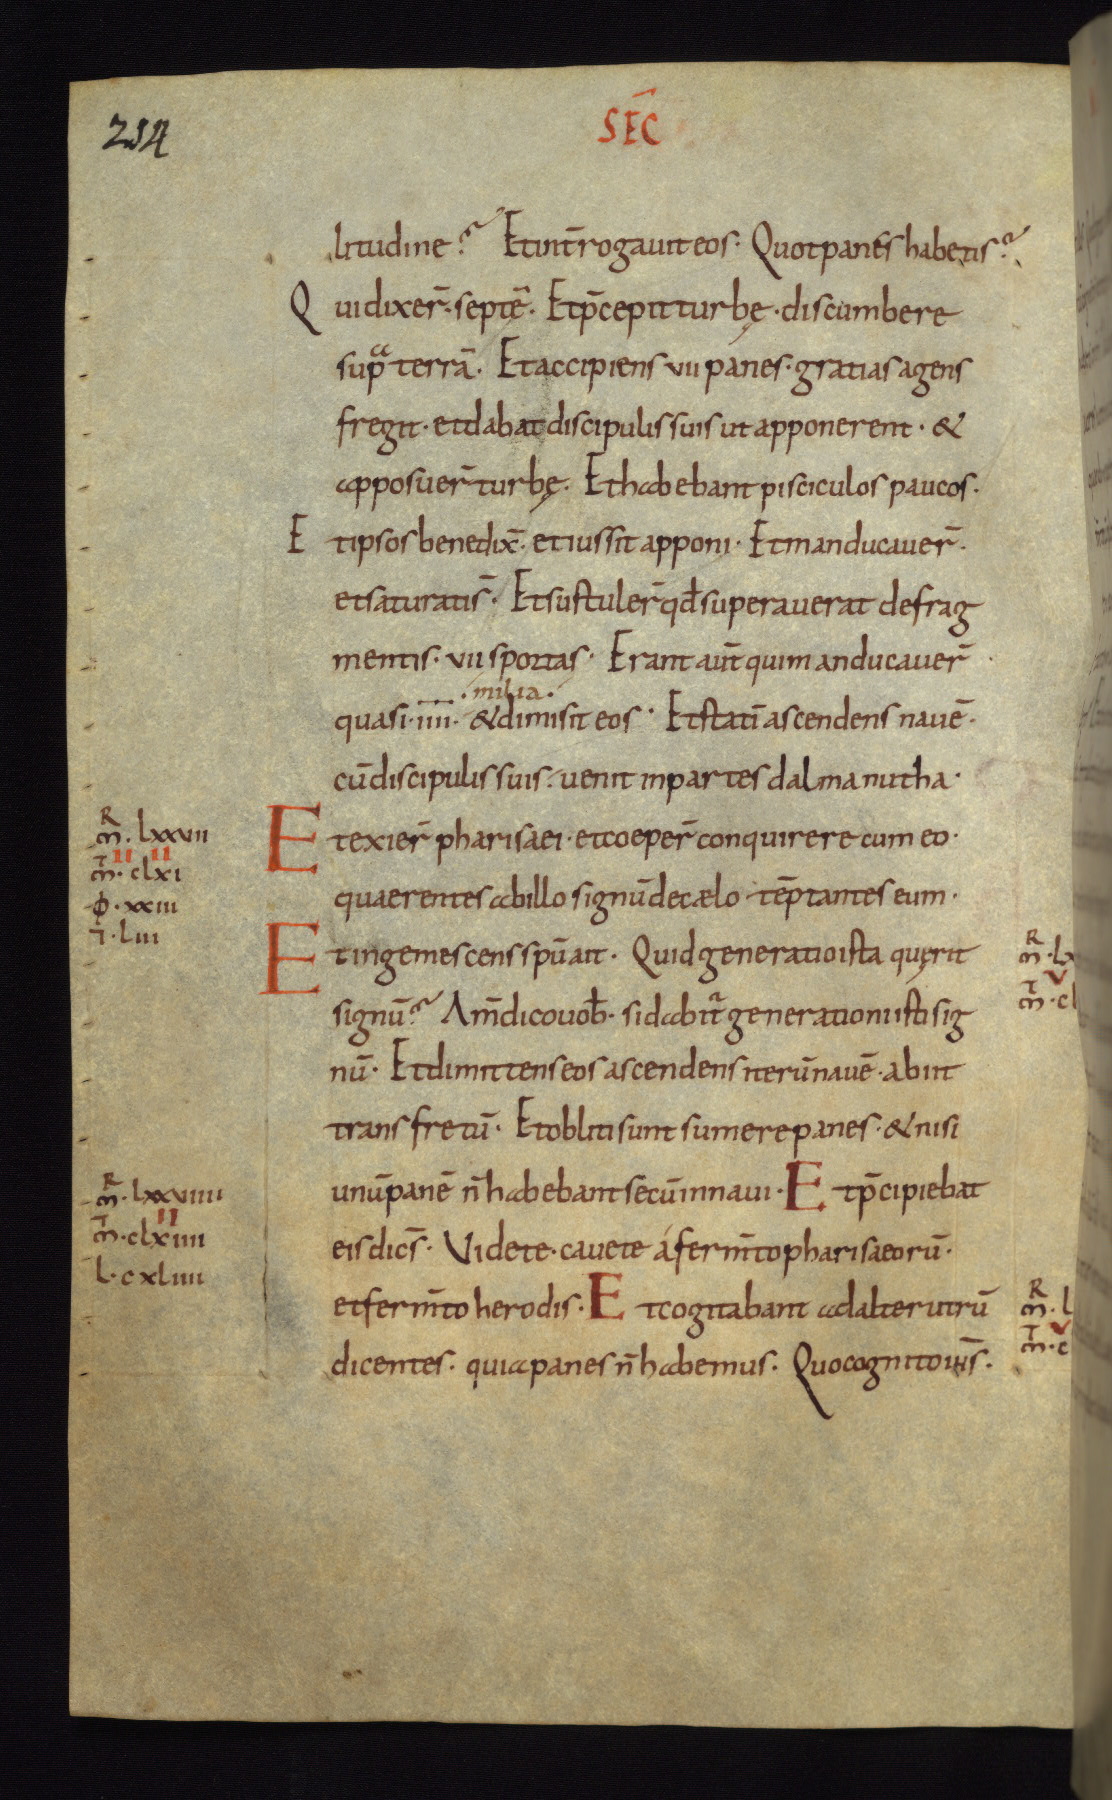 234
SEC̄
litudine? Et int̄rogauit eos· Quot panes habetis?
Qui dixer̄· septē· Et p̄cepit turbę· discumbere
sup̄a terrā· Et accipiens vii panes· gratias agens
fregit· et dabat discipulis suis ut apponerent· &
apposuer̄ turbę· Et habebant pisciculos paucos·
Et ipsos benedix̄· et iussit apponi· Et manducauer̄·
et saturatis̄· Et sustuler̄ qd̄ superauerat de frag
mentis· vii sportas· Erant aut̄ qui manducauer̄
·milia·
quasi· īīīī· & dimisit eos· Et statī ascendens nauē·
cū discipulis suis· uenit in partes dalmanutha·
R
m̄· lxxvii
Et exier̄ pharisaei· et coeper̄ conquirere cum eo·
T II II
m̄· clxi
quaerentes ab illo signū de cælo· tēptantes eum·
φ· xxiii
⁊· liii
Et ingemescens spū ait· Quid generatio ista quęrit
R
m̄· lx
signū? Am̄ dico uob̄· si dabit̄ generationi isti sig
T V
m̄· cl
nū· Et dimittens eos ascendens iterū nauē· abiit
trans fretū· Et obliti sunt sumere panes· & nisi
R
m̄· lxxviiii
unū panē n̄ habebant secū in naui· Et p̄cipiebat
T II
m̄· clxiiii
eis dics̄· Videte· cauete á ferm̄to pharisaeorū·
l· cxliiii
et ferm̄to herodis· Et cogitabant ad alterutrū
R
m̄· l
dicentes· quia panes n̄ habemus· Quo cognito ihs̄·
T V
m̄· c